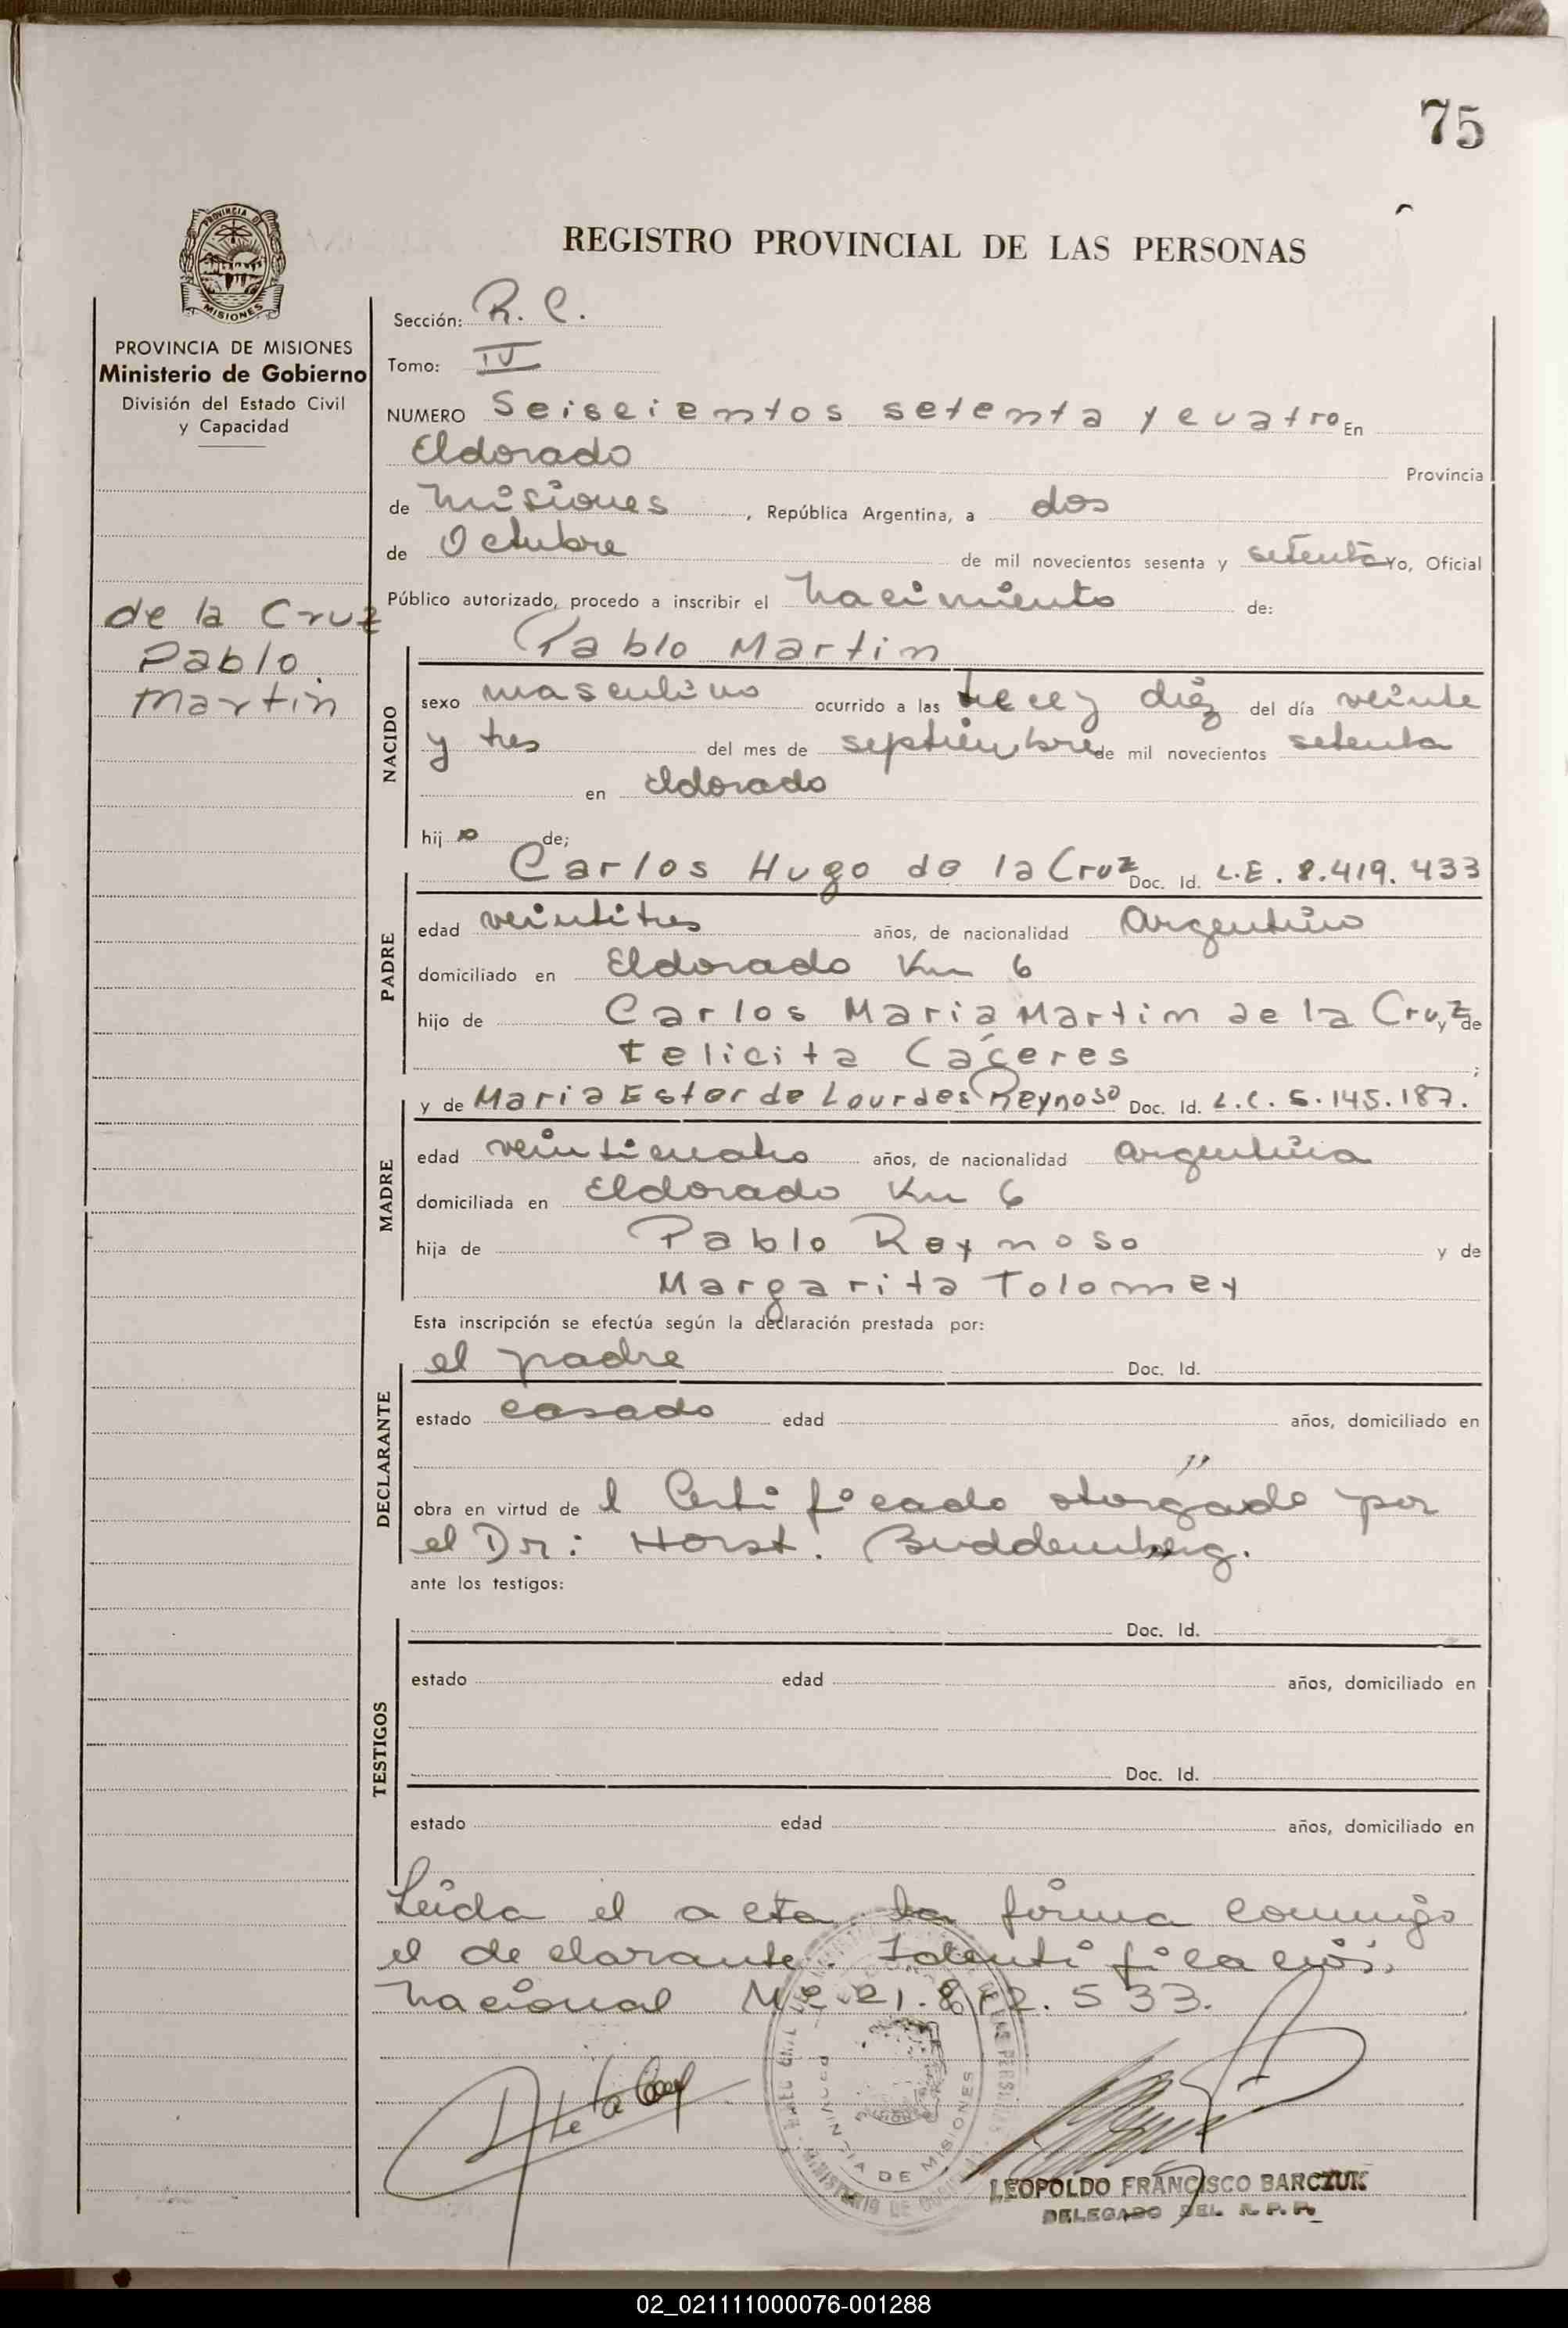 75
REGISTRO PROVINCIAL DE LAS PERSONAS
PROVINCIA DE
MISIONES
PROVINCIA DE MISIONES
Ministerio de Gobierno
División del Estado Civil
y Capacidad
de la Cruz
Pablo
Martin
Sección: R. C.
Tomo: IV
NUMERO Seiscientos setenta y cuatro En
Eldorado Provincia
de Misiones, República Argentina, a dos
de Octubre de mil novecientos sesenta y setenta Yo, Oficial
Público autorizado, procedo a inscribir el nacimiento de:
Pablo Martin
NACIDO
sexo masculino ocurrido a las trece y diez del día veinte
y tres del mes de septiembre de mil novecientos setenta
en Eldorado
hijo de;
Carlos Hugo de la Cruz Doc. Id. L.E. 8.419.433
PADRE
edad veintitres años, de nacionalidad Argentino
domiciliado en Eldorado Km 6
hijo de Carlos Maria Martin de la Cruz, y de
Felicita Cáceres ;
y de Maria Ester de Lourdes Reynoso Doc. Id. L.C. 5.145.187.
MADRE
edad veinticuatro años, de nacionalidad Argentina
domiciliada en Eldorado Km 6
hija de Pablo Reynoso y de
Margarita Tolomey
Esta inscripción se efectúa según la declaración prestada por:
el padre Doc. Id.
DECLARANTE
estado casado edad años, domiciliado en
"
obra en virtud de l Certificado otorgado por
el Dr: Horst. Buddemberg.
ante los testigos:
Doc. Id.
TESTIGOS
estado edad años, domiciliado en
Doc. Id.
estado edad años, domiciliado en
Leida el acta, la firma conmigo
el declarante. Identificación
Nacional Nº 21.872.533.
de la Cruz
PROVINCIA DE MISIONES
LEOPOLDO FRANCISCO BARCZUK
DELEGADO DEL R. P. P.
02_021111000076-001288